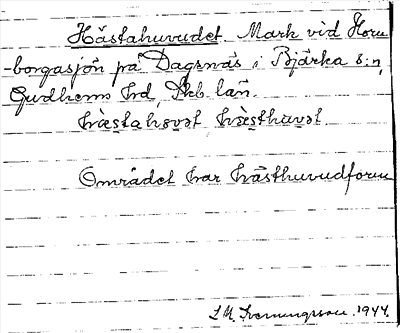 Hästahuvudet. Mark vid Horn-
-borgasjön på Dagsnäs i Bjärka s:n,
Gudhems hd, Skb. län.
hæstahovət, hæsthuvət.
Området har hästhuvudform
1944.